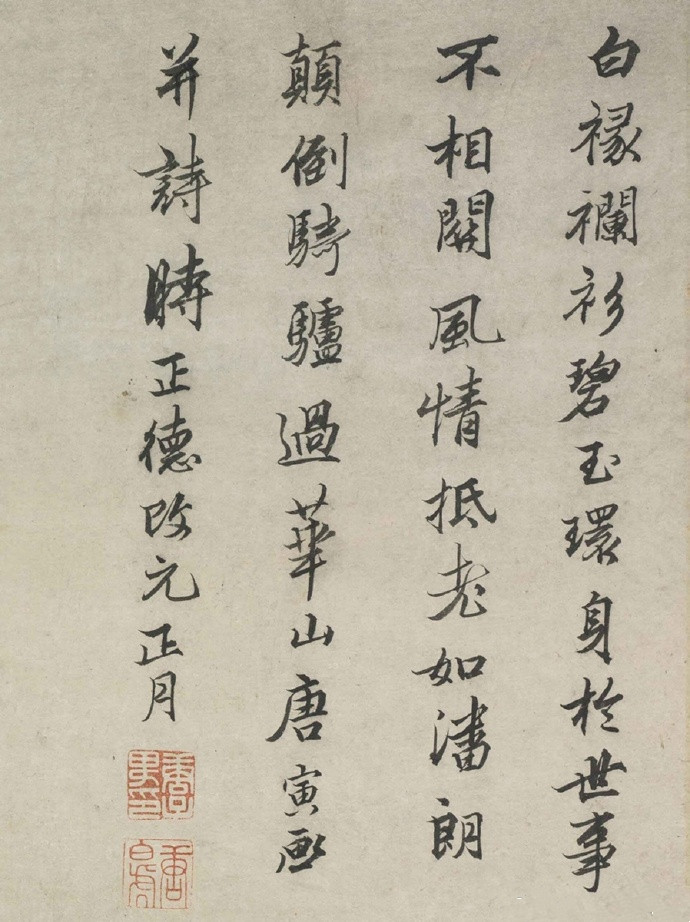 白襐襴衫碧玉環身於世事
不相關風情抵老如潘朗
顛倒騎驢過華山唐寅画
并詩時正德改元正月